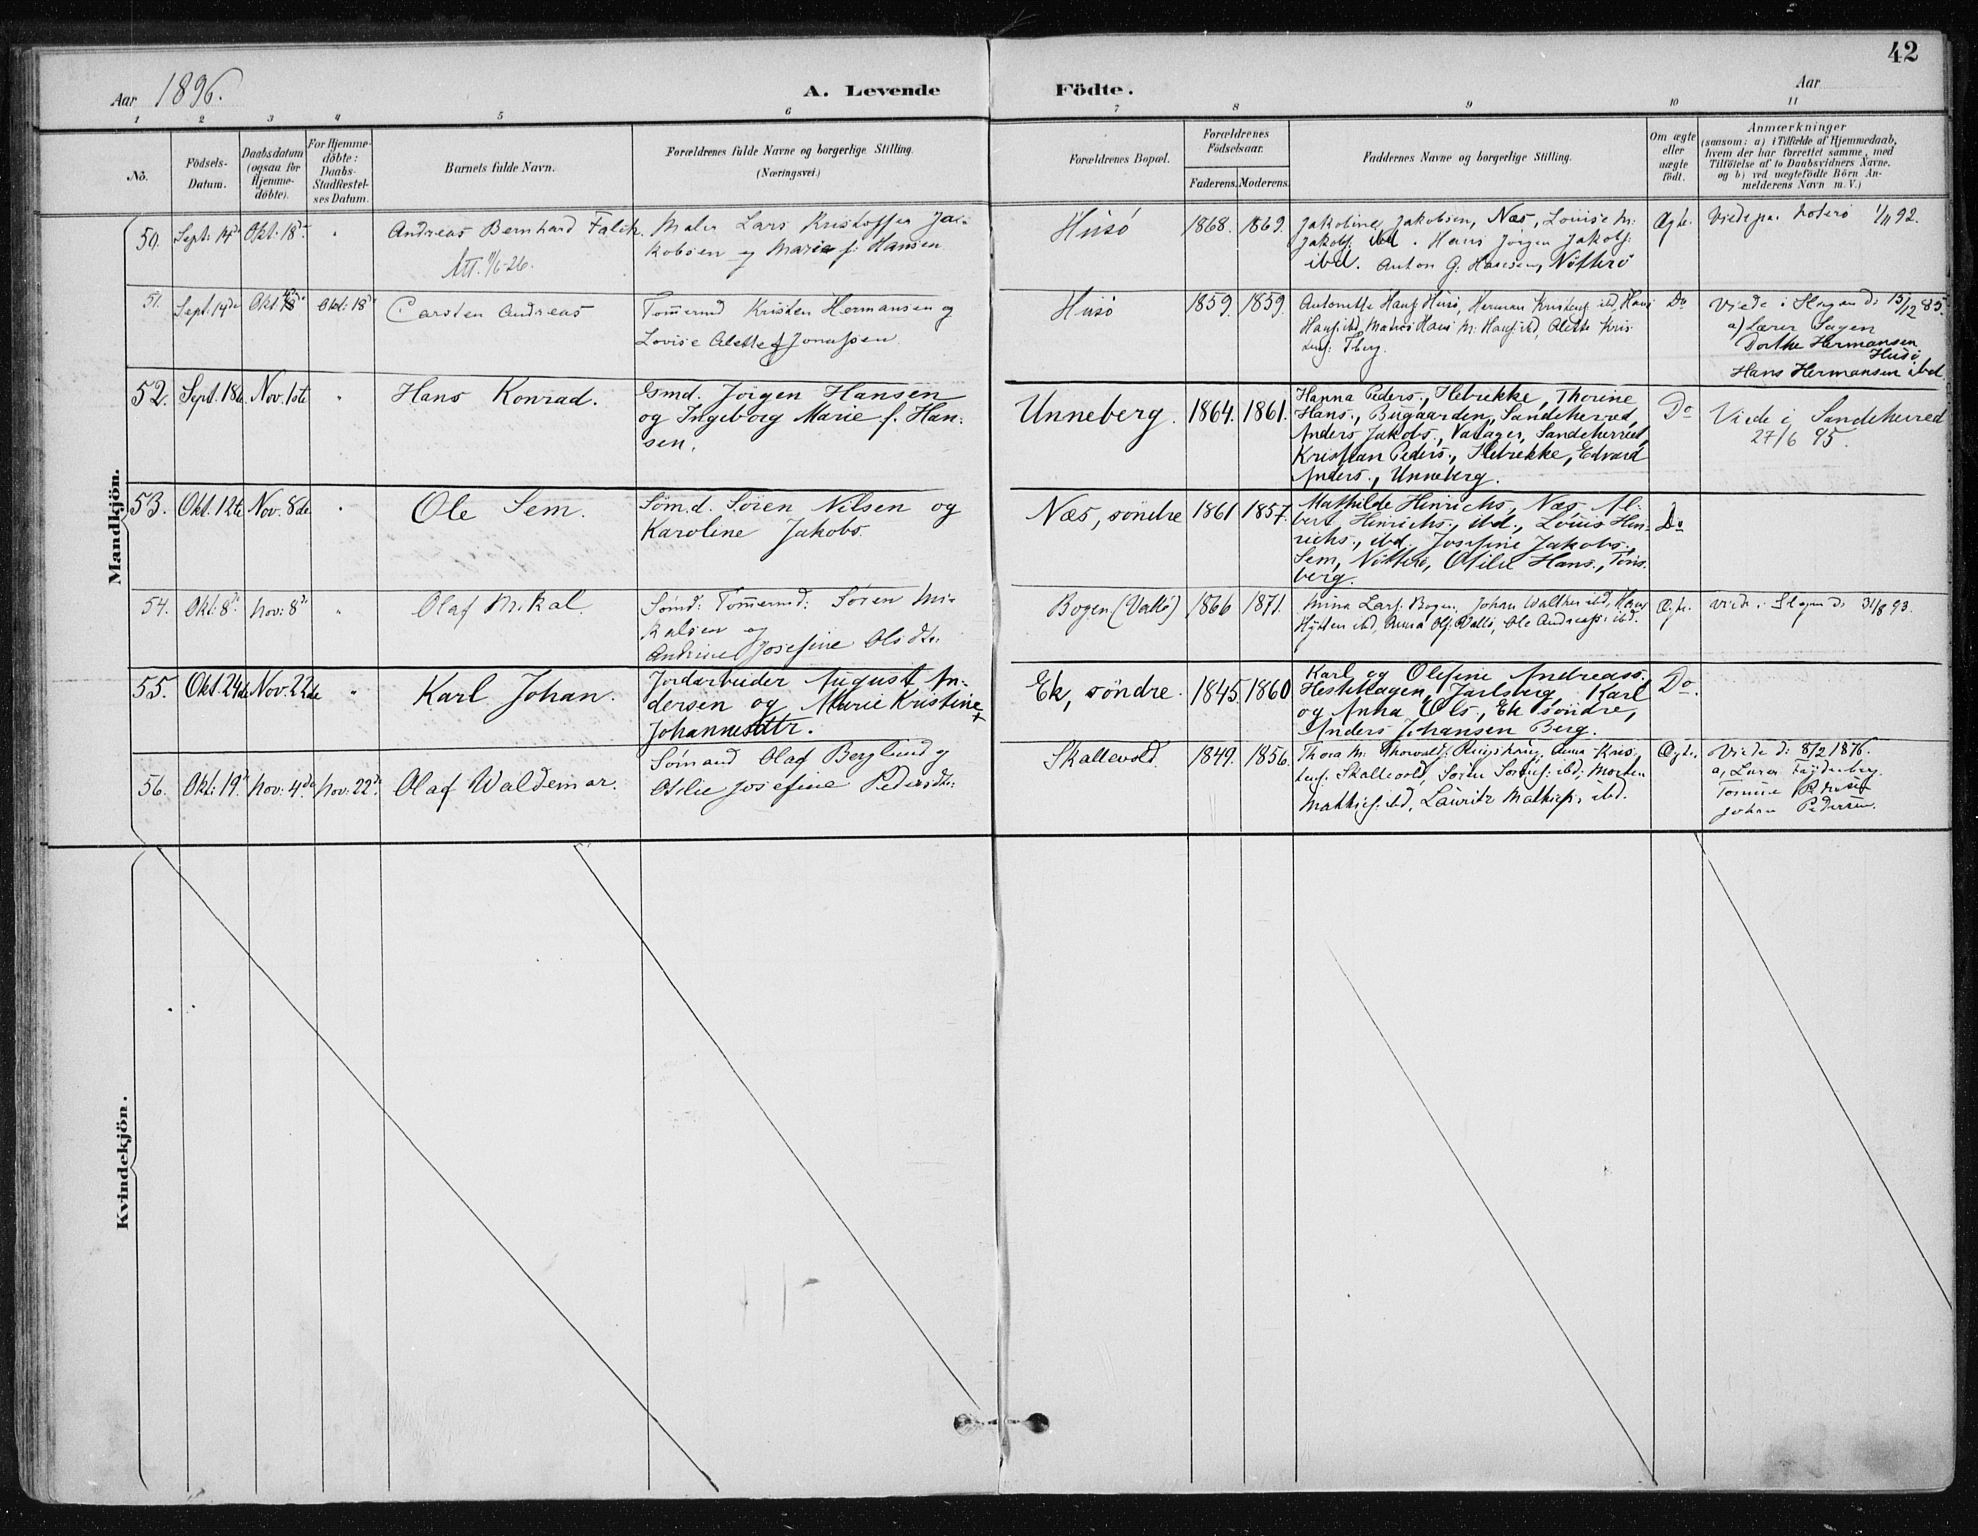 42
Aar 1896.
A. Levende Födte.
Aar
1 2 3 4 5 6 7 8 9 10 11
No.
Födsels-Datum.
Daabsdatum (ogsaa for Hjemme-döbte).
For Hjemme-döbte: Daabs-Stadfæstel-ses Datum.
Barnets fulde Navn.
Forældrenes fulde Navne og borgerlige Stilling.
(Næringsvei.)
Forældrenes Bopæl.
Forældrenes Födselsaar.
Faderens. Moderens.
Faddernes Navne og borgerlige Stilling.
Om ægte eller uægte födt.
Anmærkninger
(saasom: a) i Tilfælde af Hjemmedaab,
hvem der har forrettet samme, med
Tilföielse af to Daabsvidners Navne.
og b) ved uægtefödte Börn An-
melderens Navn m. V.)
Mandkjön.
50. Sept: 14de Okt: 18de " Andreas Bernhard Falch.
Att. 11/6-26.
Maler Lars Kristoffer Ja-
kobsen og Marie f: Hansen
Husö 1868. 1869.
Jakobine Jakobsen, Næs, Louise M:
Jakobs: ibd. Hans Jörgen Jakobs:
ibd. Anton G: Hansen, Nötterö
Ægte. Viede paa Noterö 1/11 92.
51. Sept: 14de Okt: Okt: 18de Carsten Andreas
Tömermd Kristen Hermansen og
Lovise Alette f Jonassen.
Husö 1859. 1859.
Antonette Hans: Husö, Herman Kristens: ibd, Hans
Hans: ibd, Hans: ibd, Alette Kris
tens: Tberg.
Do Viede i Slagen d: 15/12 85.
a) Lærer Sagen
Dorthe Hermansen
Husö
Hans Hermansen ibd.
52. Sept. 18de Nov. 1ste " Hans Konrad.
Gmd. Jörgen Hansen
og Ingeborg Marie f. Han-
sen.
Unneberg. 1864. 1861.
Hanna Peders., Hebrekke, Thorine
Hans., Bugaarden, Sandeherred,
Anders Jakobs., Sandeherred,
Kristian Peders., Hebrekke, Edvard
Anders., Unneberg.
Do Viede i Sandeherred
27/6 95.
53. Okt. 12te Nov. 8de " Ole Sem.
Sömd. Sören Nilsen og
Karoline Jakobs.
Næs, söndre 1861 1857.
Mathilde Hinrichs., Næs, Al-
bert Hinrichs., ibd., Louis Hin-
richs., ibd. Josefine Jakobs.
Sem, Nötterö, Otilie Hans., Töns-
berg.
Do
54. Okt: 8de Nov: 8de " Olaf Mikal.
Sömd: Tömermd: Sören Mi-
kalsen og
Andrine Josefine Olsdtr.
Bogen (Vallö) 1866 1871.
Mina Lars: Bogen, Johan Walther ibd, Hans
ibd, Anna Ols: Vallö, Ole Andreass: ibd.
Ægte. Viede i Slagen d: 31/8 93.
55. Okt. 24de Nov. 22de " Karl Johan.
Jordarbeider August An-
dersen og Marie Kristine
Johannesdtr.
Ek, söndre. 1845. 1860
Karl og Olefine Andreass.
Hesthagen, Jarlsberg, Karl
og Anna Ols., Ek söndre,
Anders Johansen Berg.
Do.
56. Okt: 19de Nov: 4de Nov: 22de Olaf Waldemar.
Sömand Olaf Berglund og
Otilie Josefine Pedersdtr.
Skallevold. 1849. 1856.
Thora M: Thorvalds: Ringshaug, Anna Kris
tens: Skallevold, Sören Sörens: ibd, Morten
Mathias: ibd, Lauritz Mathias: ibd.
Ægte. Viede d: 8/2 1876.
a, Lærer
Tomine
Johan Pedersen.
Kvindekjön.